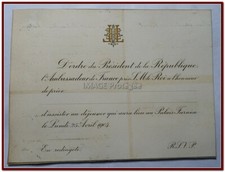 D'ordre du Président de la République
l'Ambassadeur de France près S.M. le Roi a l'honneur
de prier
d'assister au déjeuner qui aura lieu au Palais Farnèse
le Lundi 25 Avril 1904
En redingote
R.S.V.P.